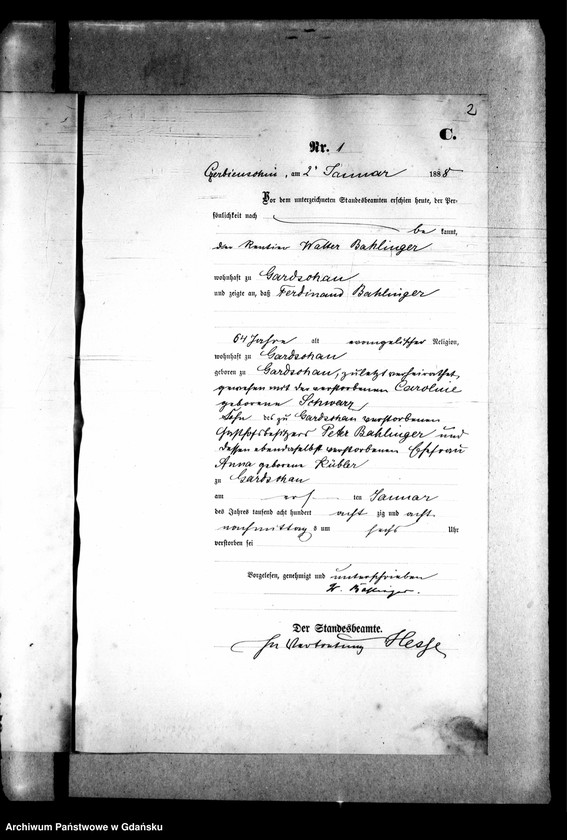 2
C.
Nr. 1
Czerbienschin, am 2ten Januar 1888
Vor dem unterzeichneten Standesbeamten erschien heute, der Per-
sönlichkeit nach
be kannt,
der Rentier Walter Bahlinger
wohnhaft zu Gardschau
und zeigte an, daß Ferdinand Bahlinger
64 Jahre alt evangelischer Religion,
wohnhaft zu Gardschau
geboren zu Gardschau, zuletzt verheirathet
gewesen mit der verstorbenen Caroline
geborene Schwarz
Sohn des zu Gardschau verstorbenen
Gutsbesitzers Peter Bahlinger und
dessen ebendaselbst verstorbenen Ehefrau
Anna geborene Kübler
zu Gardschau
am ersten Januar
des Jahres tausend acht hundert acht zig und acht
nachmittag s um sechs Uhr
verstorben sei
Vorgelesen, genehmigt und unterschrieben
W. Bahlinger.
Der Standesbeamte.
In Vertretung Hesse
Archiwum Państwowe w Gdańsku